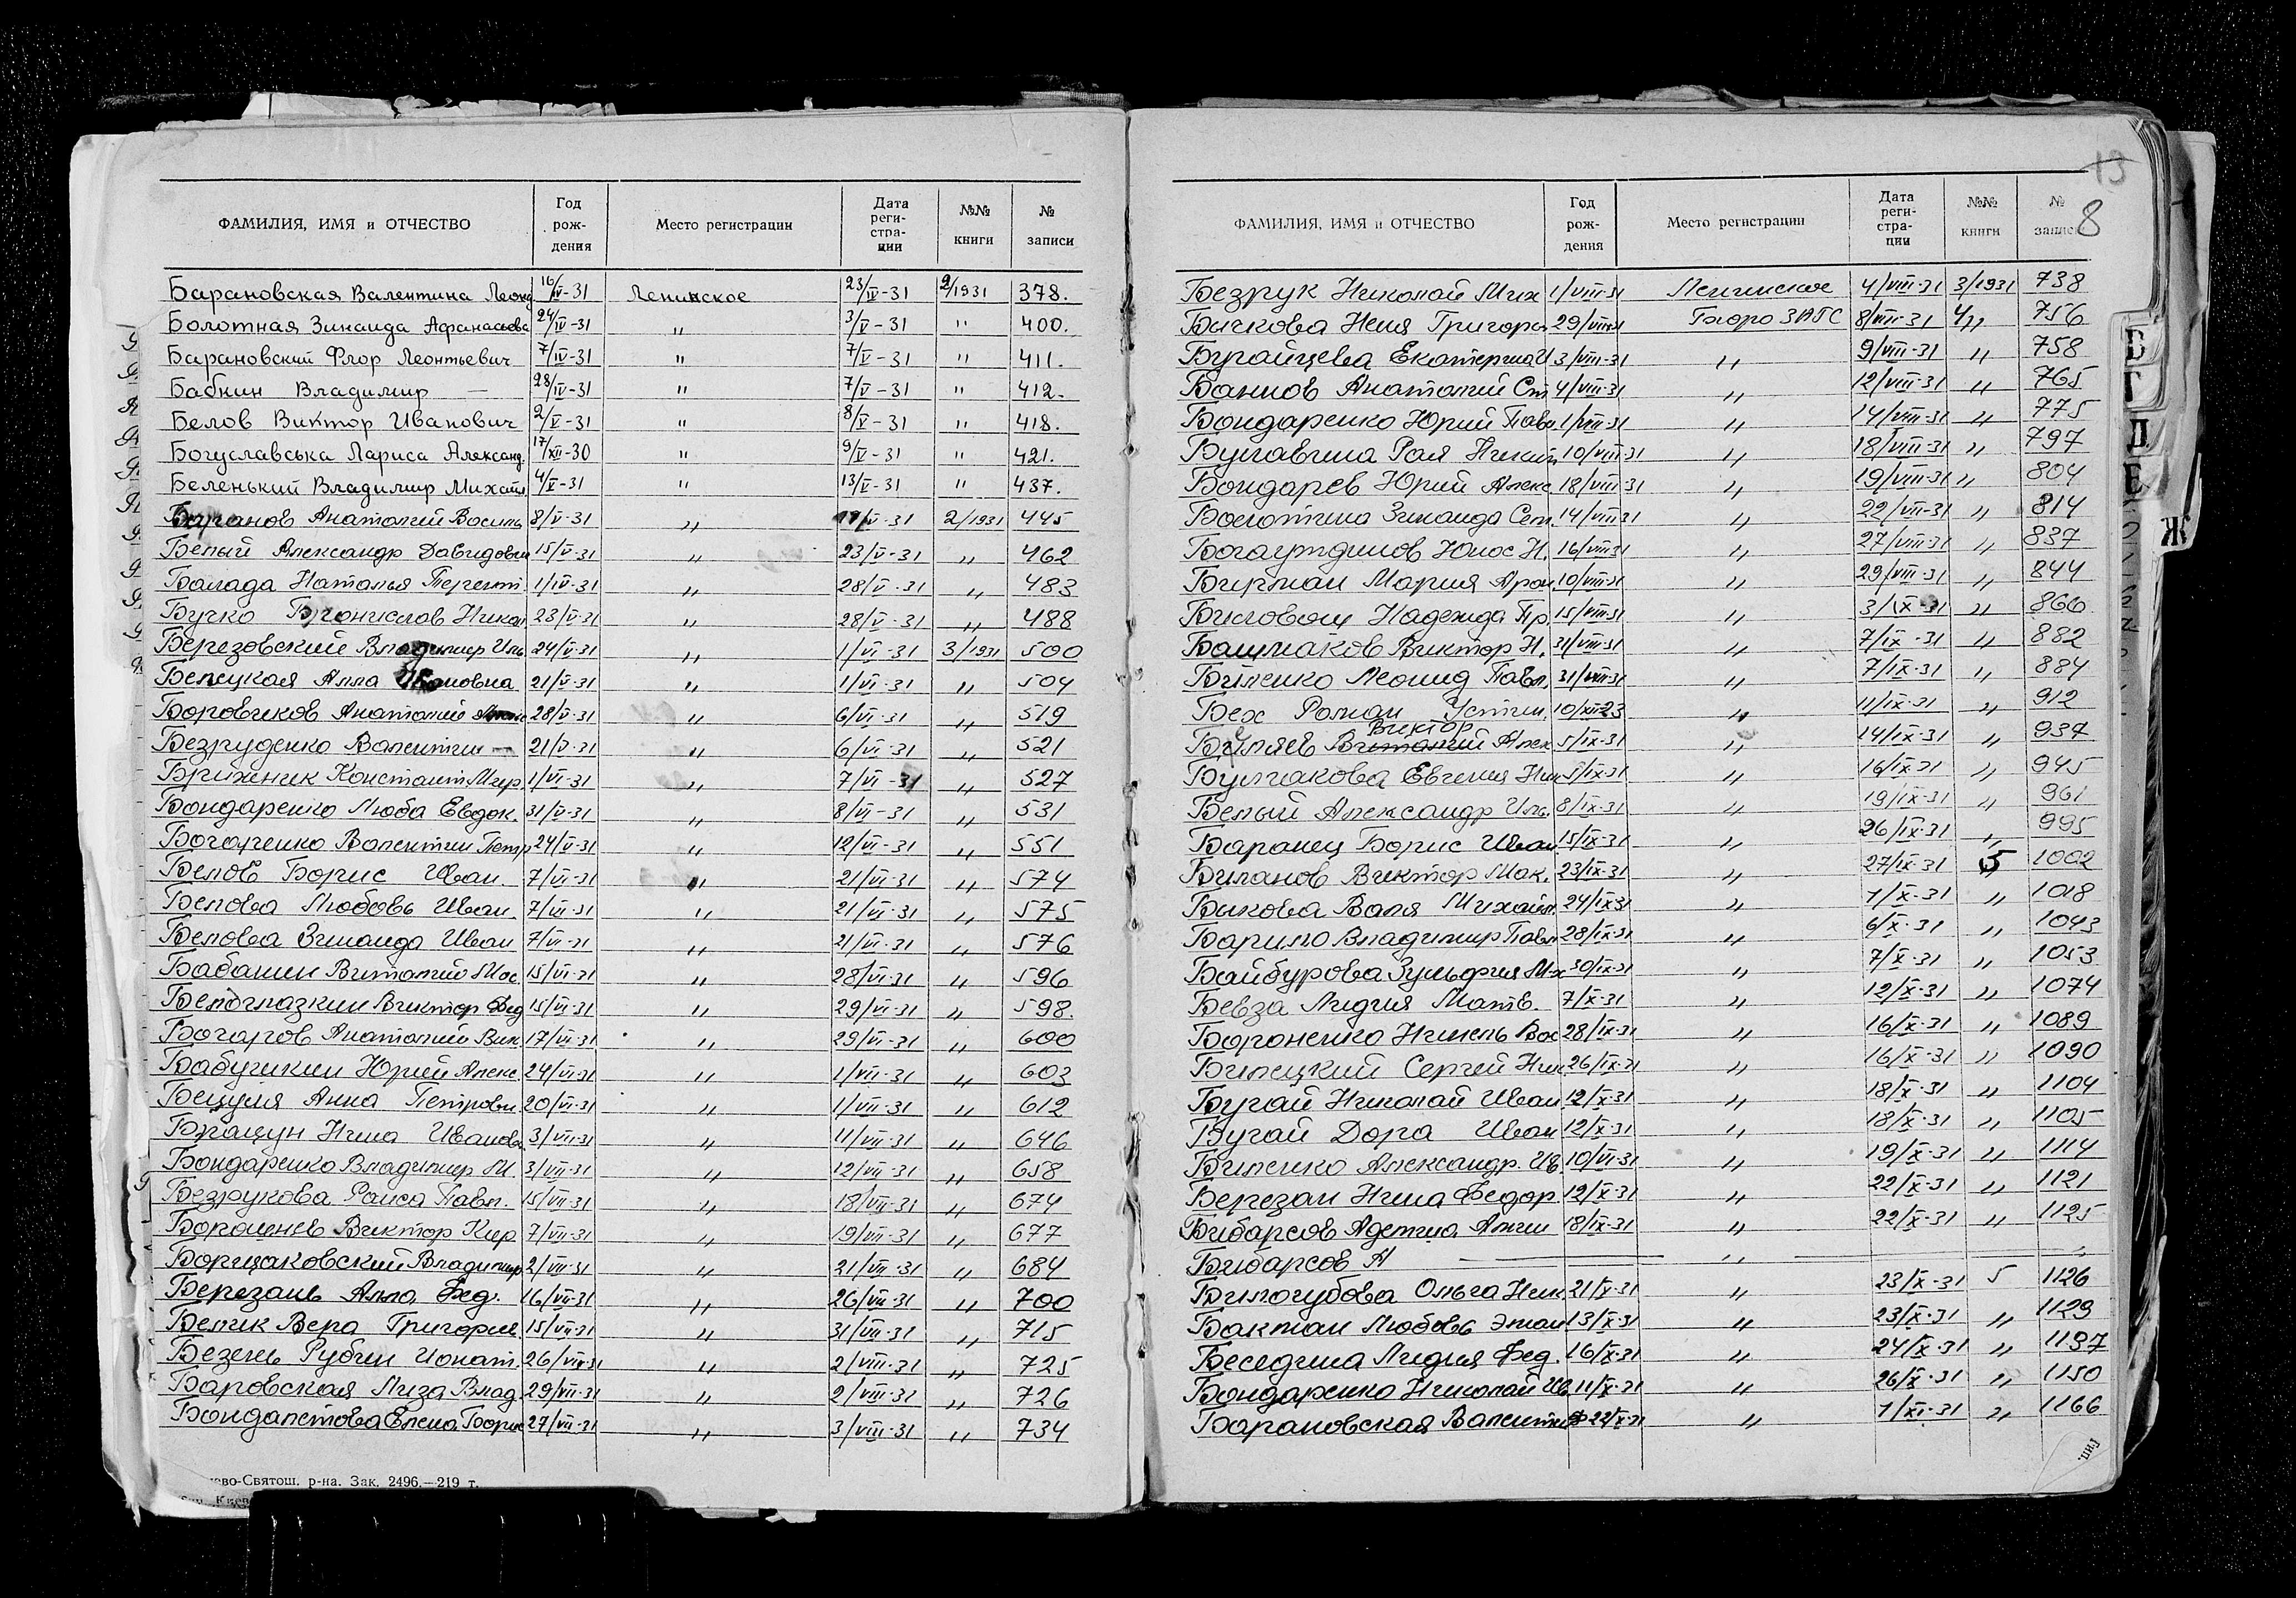 ФАМИЛИЯ, ИМЯ и ОТЧЕСТВО Год рождения Место регистрации Дата регистрации №№ книги № записи
Барановская Валентина Леонд 16/IV-31 Ленинское 23/IV-31 2/1931 378.
Болотная Зинаида Афанасьева 24/IV-31 " 3/V-31 " 400.
Барановский Флор Леонтьевич 7/IV-31 " 7/V-31 " 411.
Бабкин Владимир — 28/IV-31 " 7/V-31 " 412.
Белов Виктор Иванович 2/V-31 " 8/V-31 " 418.
Богуславська Лариса Александ. 17/XII-30 " 9/V-31 " 421.
Беленький Владимир Михайл 4/V-31 " 13/V-31 " 437.
Баранов Анатолий Василь 8/V-31 " /V-31 2/1931 445
Белый Александр Давидович 15/V-31 " 23/V-31 " 462
Балада Наталья Терент. 1/IV-31 " 28/V-31 " 483
Бучко Бронислав Никол 23/V-31 " 28/V-31 " 488
Березовский Владимир Иль 24/V-31 " 1/VI-31 3/1931 500
Белецкая Алла Ивановна 21/V-31 " 1/VI-31 " 504
Боровиков Анатолий 28/V-31 " 6/VI-31 " 519
Безруденко Валентин — 21/V-31 " 6/VI-31 " 521
Бриженик Констант. Мир. 1/VI-31 " 7/VI-31 " 527
Бондаренко Люба Евдок. 31/V-31 " 8/VI-31 " 531
Бондаренко Валентин Петр 24/V-31 " 12/VI-31 " 551
Белов Борис Иван. 7/VI-31 " 21/VI-31 " 574
Белова Любовь Иван. 7/VI-31 " 21/VI-31 " 575
Белова Зинаида Иван 7/VI-31 " 21/VI-31 " 576
Бабанин Виталий Мос. 15/VI-31 " 28/VI-31 " 596
Белоглазкин Виктор Фед 15/VI-31 " 29/VI-31 " 598.
Бочаров Анатолий Вик. 17/VI-31 " 29/VI-31 " 600
Бабушкин Юрий Алекс. 24/VI-31 " 1/VII-31 " 603
Бецуля Анна Петровн 20/VI-31 " 1/VII-31 " 612
Бращун Нина Иванова 3/VII-31 " 11/VII-31 " 646
Бондаренко Владимир М. 3/VII-31 " 12/VII-31 " 658
Безрукова Раиса Павл. 15/VII-31 " 18/VII-31 " 674
Виктор Кир. 7/VII-31 " 19/VII-31 " 677
Борщаковский Владимир 2/VII-31 " 21/VII-31 " 684
Березань Алла Фед. 16/VII-31 " 26/VII-31 " 700
Белик Вера Григорьев. 15/VII-31 " 31/VII-31 " 715
Безень Рубин Ионат. 26/VII-31 " 2/VIII-31 " 725
Баровская Лиза Влад. 29/VII-31 " 2/VIII-31 " 726
Бондалетова Елена Борис 27/VII-31 " 3/VIII-31 " 734
ево-Святош. р-на. Зак. 2496.—219 т.
13
8
ФАМИЛИЯ, ИМЯ и ОТЧЕСТВО Год рождения Место регистрации Дата регистрации №№ книги № записи
Безрук Николай Мих 1/VIII-31 Ленинское 4/VIII-31 3/1931 738
Бычкова Неля Григорь 29/VII-31 Бюро ЗАГС 8/VIII-31 4 " 756
Бугайцева Екатерина И 3/VIII-31 " 9/VIII-31 " 758
Баннов Анатолий Ст 4/VIII-31 " 12/VIII-31 " 765
Бондаренко Юрий Павл. 1/VIII-31 " 14/VIII-31 " 775
Булавина Рая Никит 10/VIII-31 " 18/VIII-31 " 797
Бондарев Юрий Алекс. 18/VIII-31 " 19/VIII-31 " 804
Болотина Зинаида Сем. 14/VIII-31 " 22/VII-31 " 814
Богаутдинов Юнос Н. 16/VIII-31 " 27/VIII-31 " 837
Бирман Мария Арон. 10/VIII-31 " 29/VIII-31 " 844
Надежда Пр. 15/VIII-31 " 3/IX-31 " 866
Башмаков Виктор Н. 31/VIII-31 " 7/IX-31 " 882
Биленко Леонид Павл. 31/VIII-31 " 7/IX-31 " 884
Бех Роман Устин. 10/XII-23 " 11/IX-31 " 912
Виктор
Беляев Виталий Алек 5/IX-31 " 14/IX-31 " 937
Булгакова Евгения Ник 5/IX-31 " 16/IX-31 " 945
Белый Александр Иль. 8/IX-31 " 19/IX-31 " 961
Баранец Борис Иван 15/IX-31 " 26/IX-31 " 995
Биланов Виктор Мак. 23/IX-31 " 27/IX-31 5 1002
Бикова Валя Михайл. 24/IX-31 " 1/X-31 " 1018
Барило Владимир Павл 28/IX-31 " 6/X-31 " 1043
Байбурова Зульфия М. 30/IX-31 " 7/X-31 " 1053
Бевза Лидия Матв. 7/X-31 " 12/X-31 " 1074
Бороненко Нинель Вас 28/IX-31 " 16/X-31 " 1089
Билецкий Сергей Ник. 26/IX-31 " 16/X-31 " 1090
Бугай Николай Иван 12/X-31 " 18/X-31 " 1104
Бугай Дора Иван 12/X-31 " 18/X-31 " 1105
Биленко Александр. Ив 10/VI-31 " 19/X-31 " 1114
Березан Нина Федор. 12/X-31 " 22/X-31 " 1121
Бибарсов Алим 18/IX-31 " 22/X-31 " 1125
Бибарсов А — " — "
Билогубова Ольга Ник 21/X-31 " 23/X-31 5 1126
Бакман Любовь Эман 13/X-31 " 23/X-31 " 1129
Беседина Лидия Фед. 16/X-31 " 24/X-31 " 1137
Бондаренко Николай Ив 11/X-31 " 26/X-31 " 1150
Барановская Валентин Ф 22/X-31 " 1/XI-31 " 1166
В
Г
Д
Е
Ж